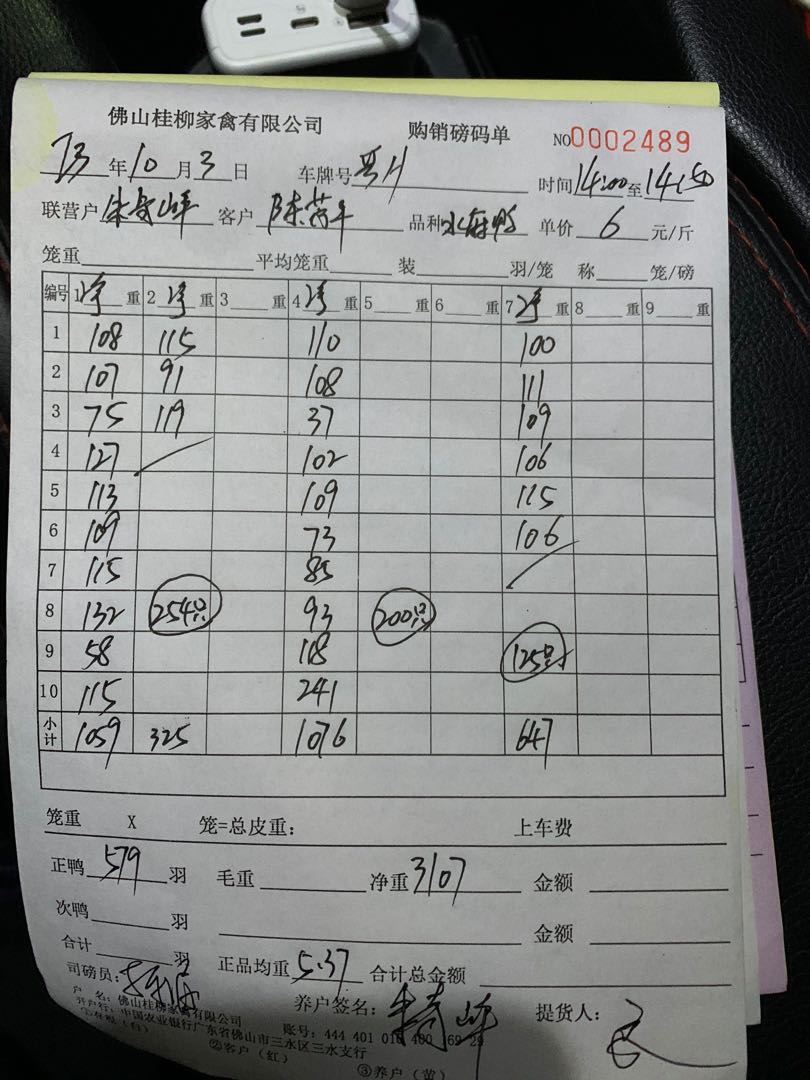 佛山桂柳家禽有限公司 购销磅码单 NO0002489
23年10月3日 车牌号 时间14:00至14:50
联营户 客户 品种 单价6元/斤
笼重 平均笼重 装 羽/笼 称 笼/磅
编号 1净重 2净重 3重 4净重 5重 6重 7净重 8重 9重
1 108 115 110 100
2 107 91 108 111
3 75 119 37 109
4 127 102 106
5 113 109 115
6 109 73 106
7 115 85
8 132 254只 93 200只
9 58 118 125只
10 115 241
小计 1059 325 1076 647
笼重 X 笼=总皮重: 上车费
正鸭579羽 毛重 净重3107 金额
次鸭 羽 金额
合计 羽
司磅员: 正品均重5.37 合计总金额
养户签名: 提货人:
户 名: 佛山桂柳家禽有限公司
开户行: 中国农业银行广东省佛山市三水区三水支行
账号: 444 401 010 400 69 29
①存根(白) ②客户(红) ③养户(黄)